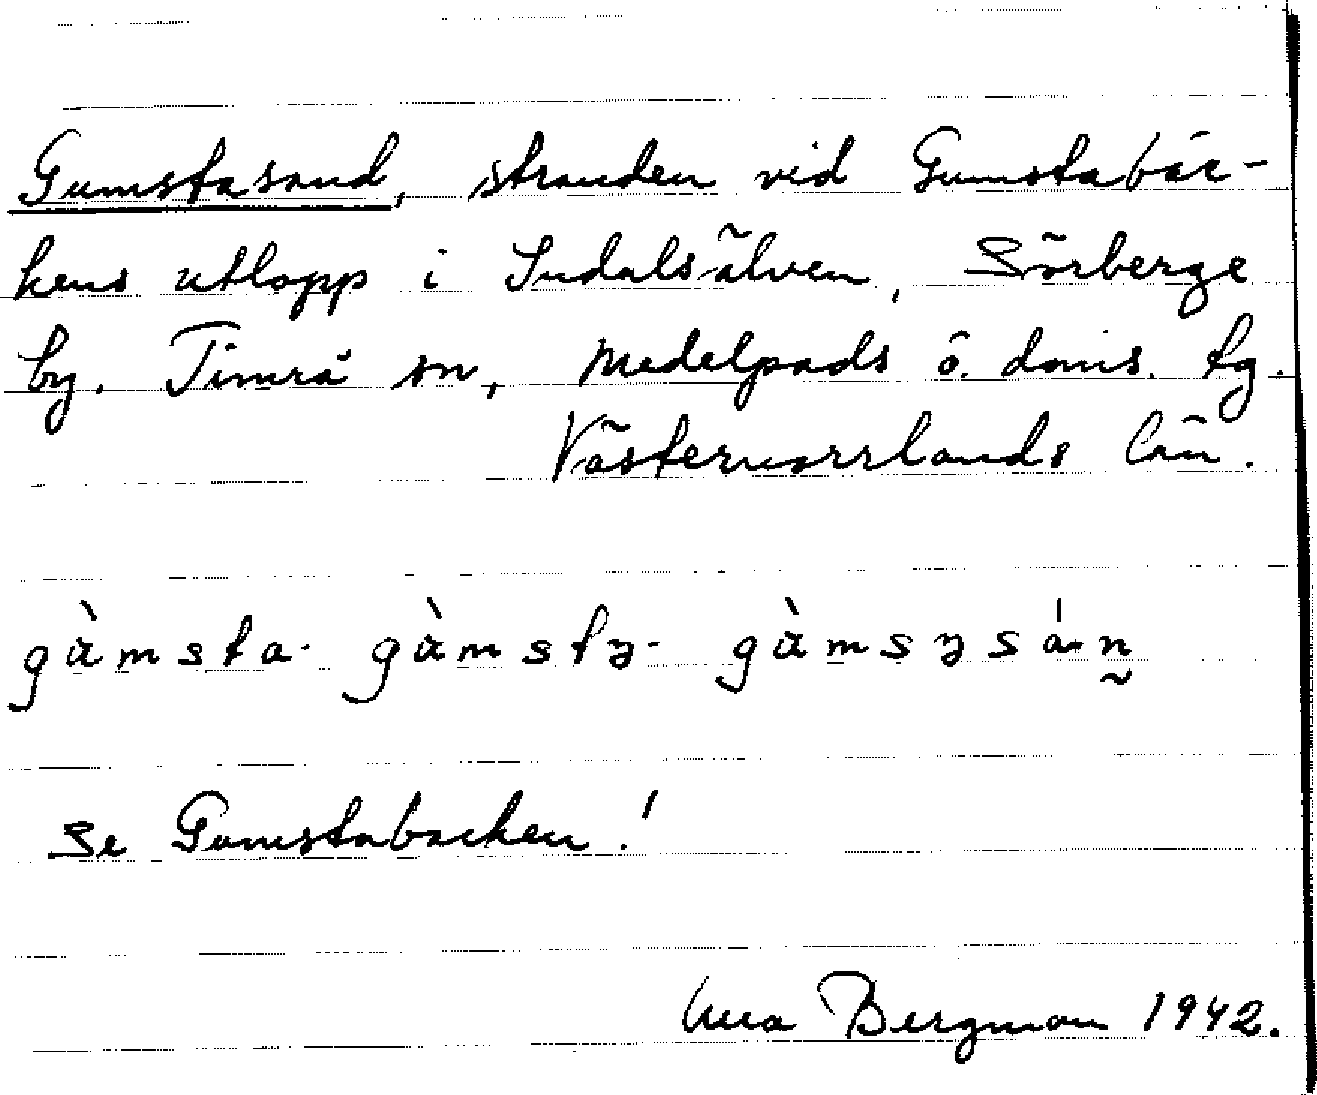 Gumstasand, stranden vid Gumstabäc-
kens utlopp i Indalsälven, Sörberge
by, Timrå sn, Medelpads ö. doms. tg.
Västernorrlands län.
gàmsta- gàmstȝ- gàmsȝsá·n̰
Se Gumstabacken!
Bergman 1942.